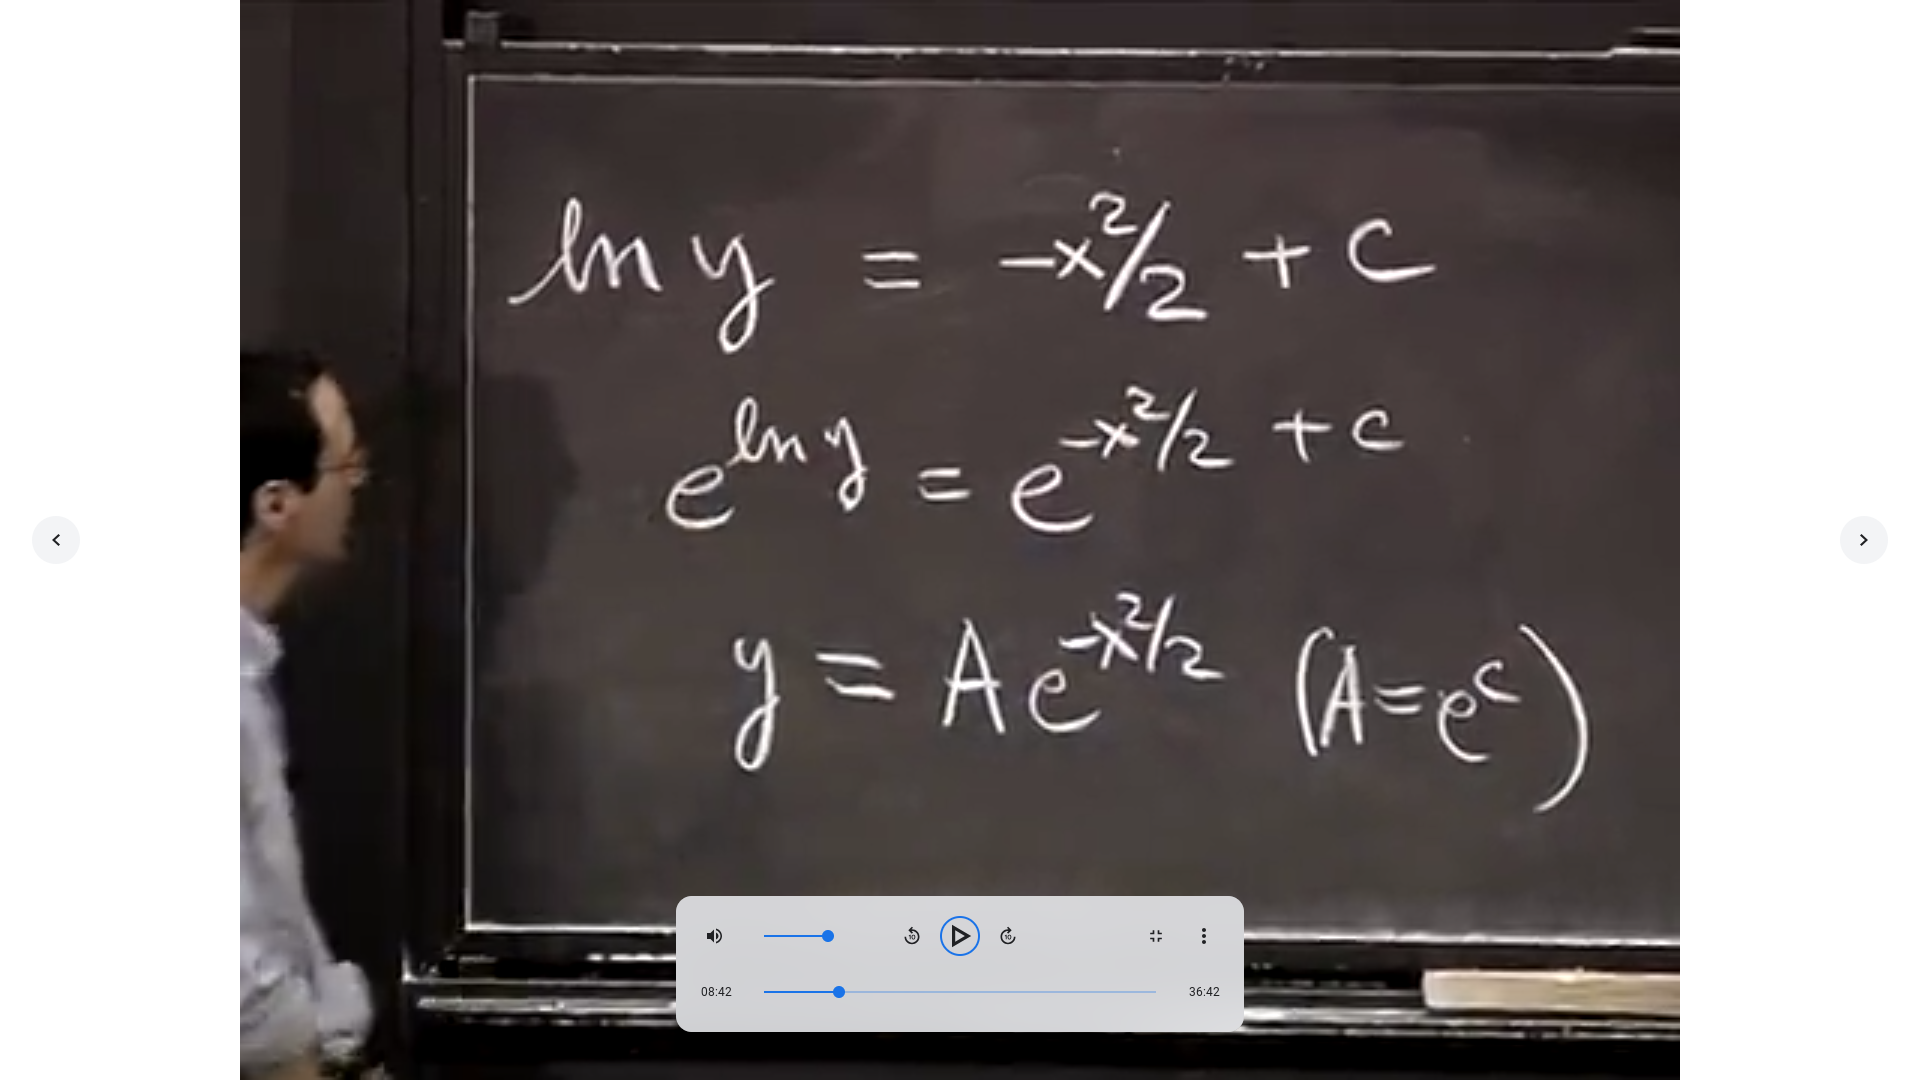 ln y = -x²/2 + c
e^{ln y} = e^{-x²/2 + c}
y = A e^{-x²/2} (A = e^c)
10 10
08:42 36:42